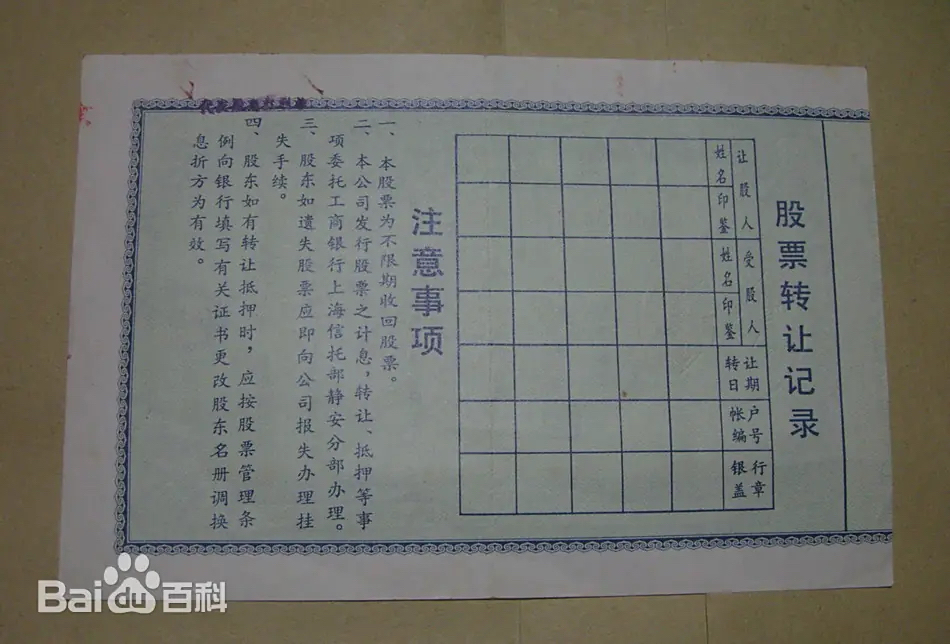 股票转让记录
让股人
姓名印鉴
受股人
姓名印鉴
转让
日期
帐户
编号
银行
盖章
注意事项
一、本股票为不限期收回股票。
二、本公司发行股票之计息，转让、抵押等事
项委托工商银行上海信托部静安分部办理。
三、股东如遗失股票应即向公司报失办理挂
失手续。
四、股东如有转让抵押时，应按股票管理条
例向银行填写有关证书更改股东名册调换
息折方为有效。
Bai du 百科